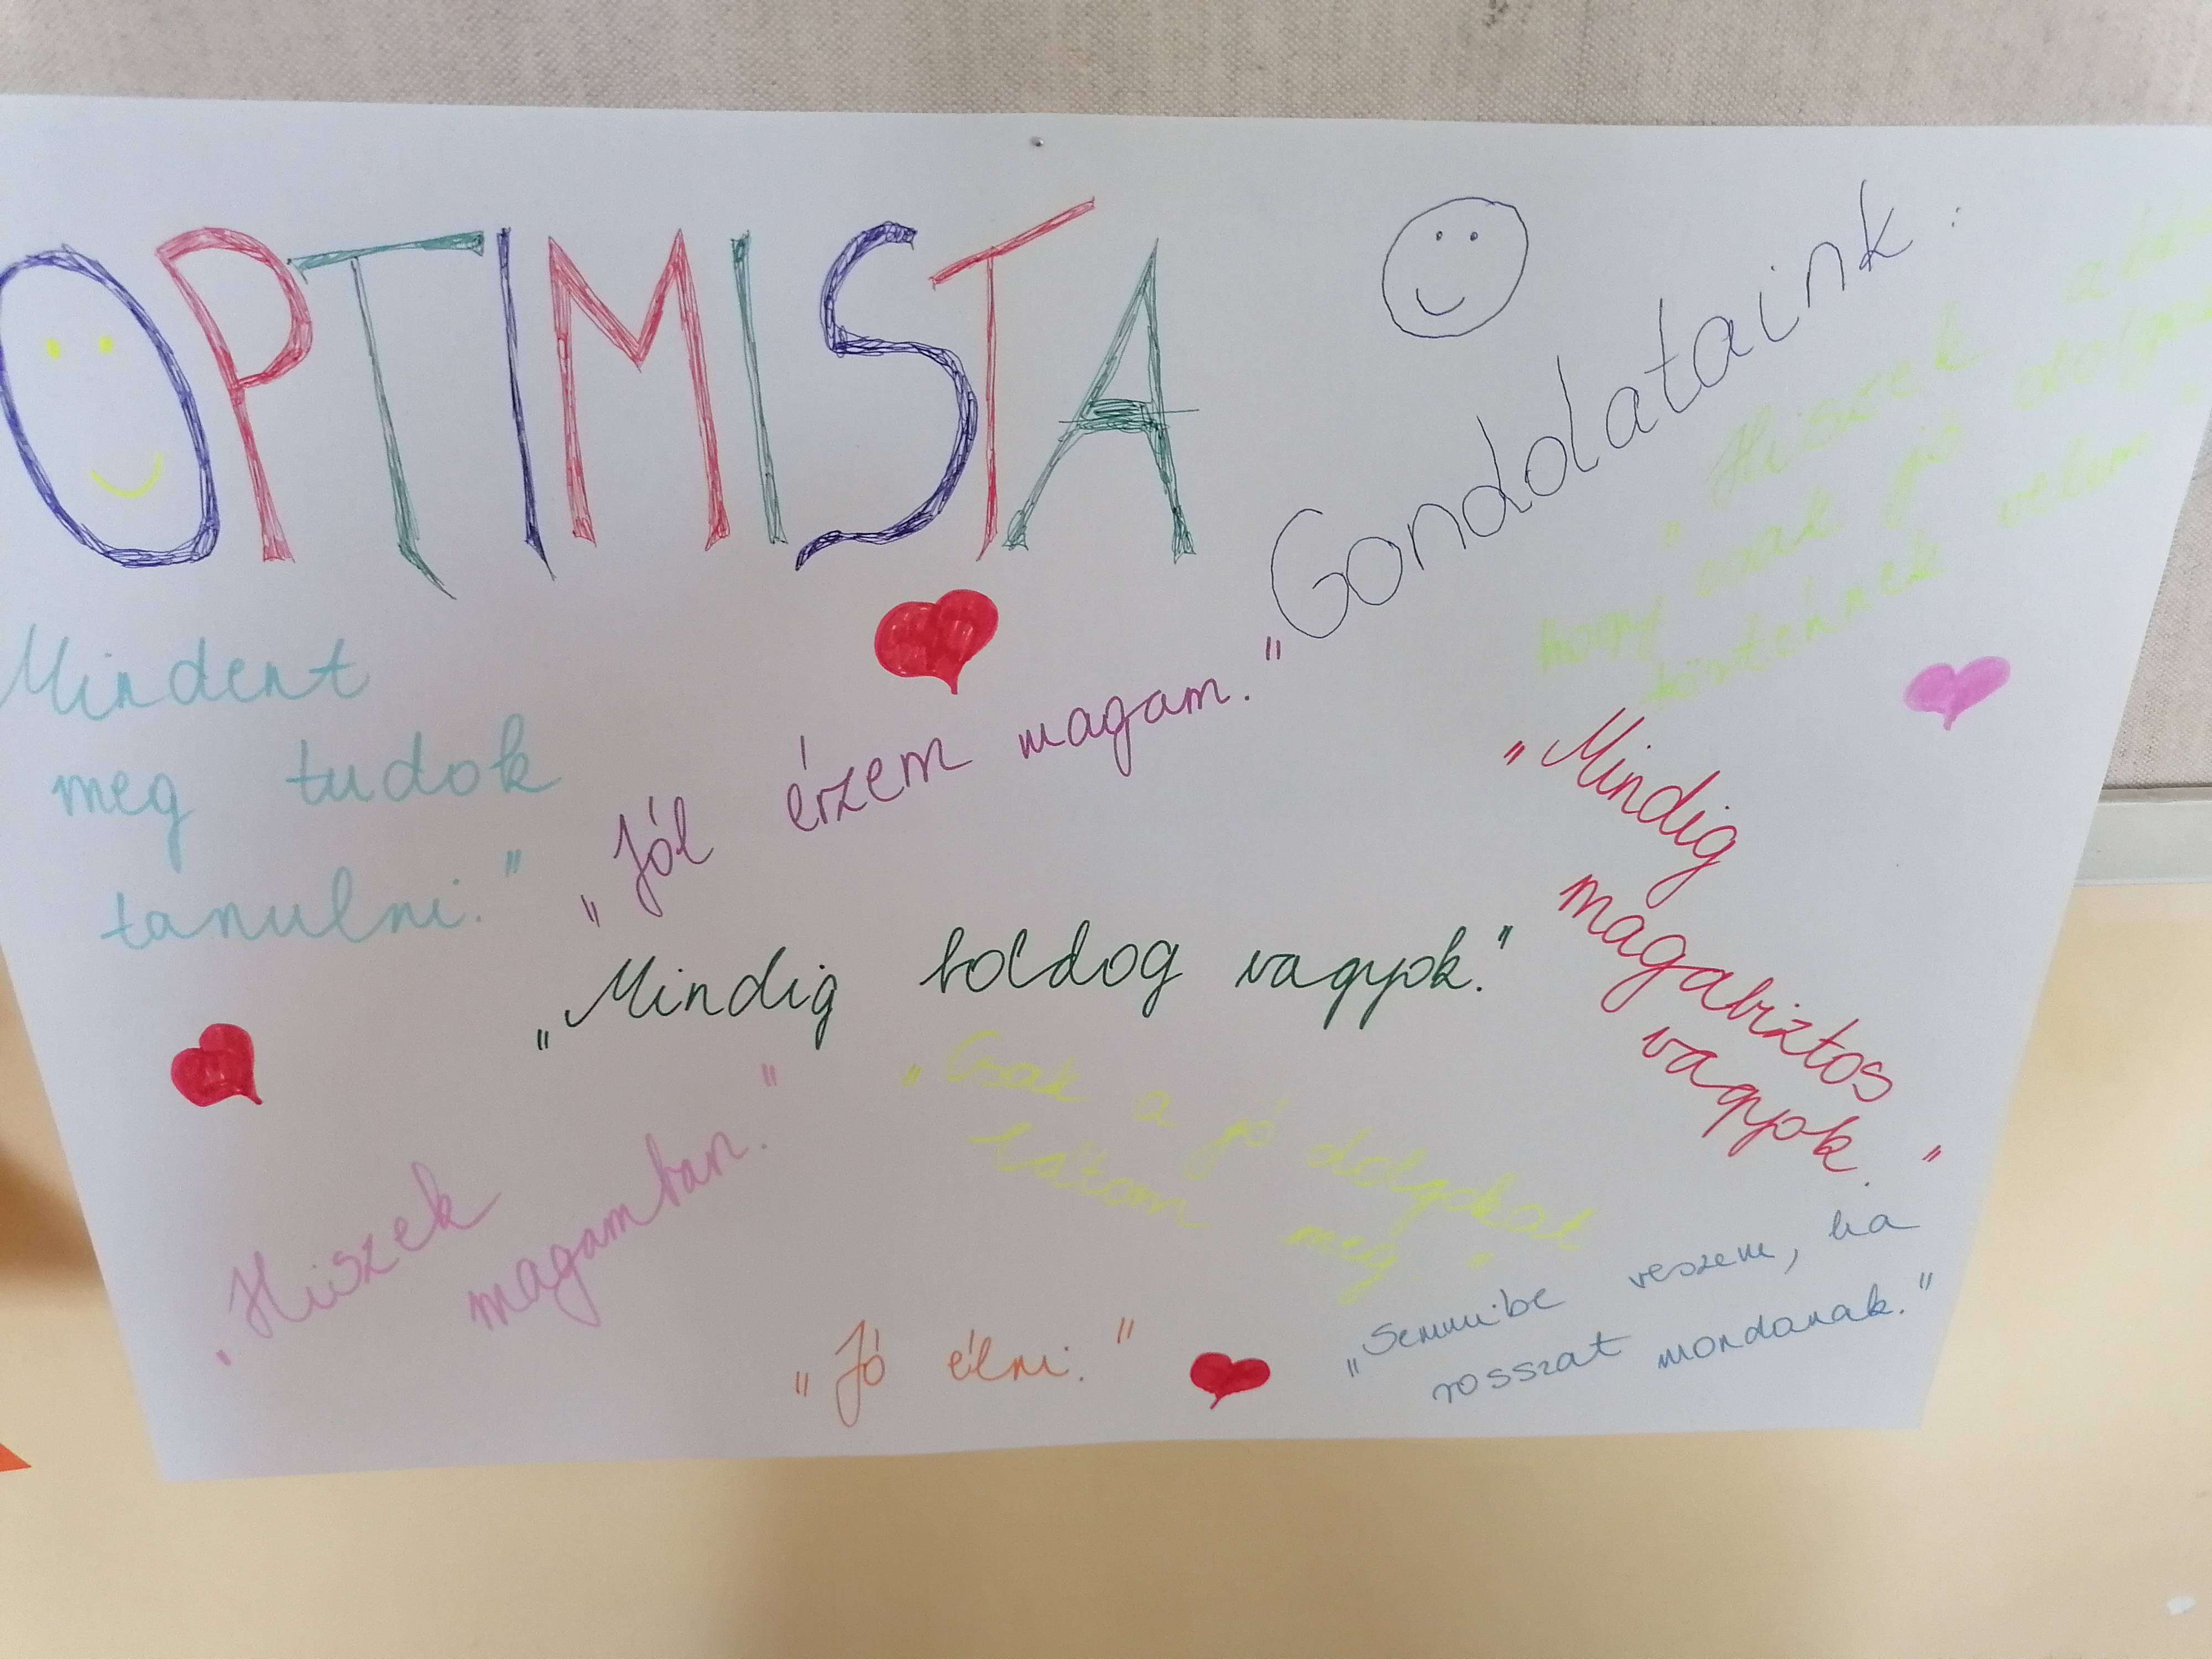 OPTIMISTA
Gondolataink:
„Hiszek
hogy csak jó
történnek velem
Mindent
meg tudok
tanulni."
„Jól érzem magam."
„Mindig
magabiztos
vagyok."
„Mindig boldog vagyok."
„Csak a jó dolgokat
látom meg."
„Hiszek
magamban."
„Semmibe veszem, ha
rosszat mondanak."
„Jó élni."